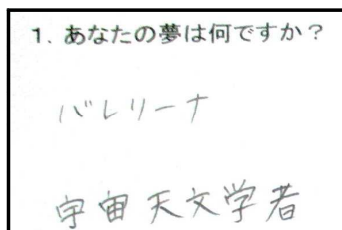 1. あなたの夢は何ですか？
バレリーナ
宇宙天文学者